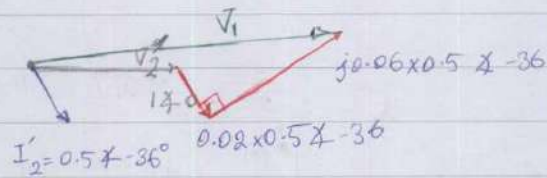 V̄₁
V̄₂'
j0.06×0.5∡-36
1∡0
0.02×0.5∡-36
I₂'=0.5∡-36°